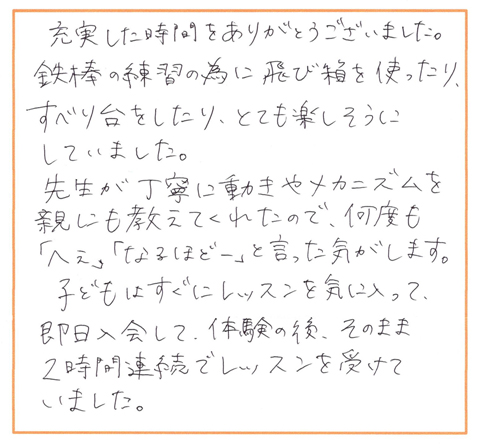 充実した時間をありがとうございました。
鉄棒の練習の為に飛び箱を使ったり、
すべり台をしたり、とても楽しそうに
していました。
先生が丁寧に動きやメカニズムを
親にも教えてくれたので、何度も
「へぇ」、「なるほどー」と言った気がします。
子どもはすぐにレッスンを気に入って、
即日入会して、体験の後、そのまま
2時間連続でレッスンを受けて
いました。